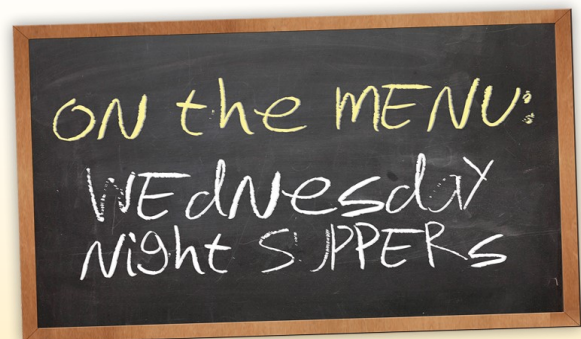 ON the MENU:
WEdNesday
Night SUPPERs